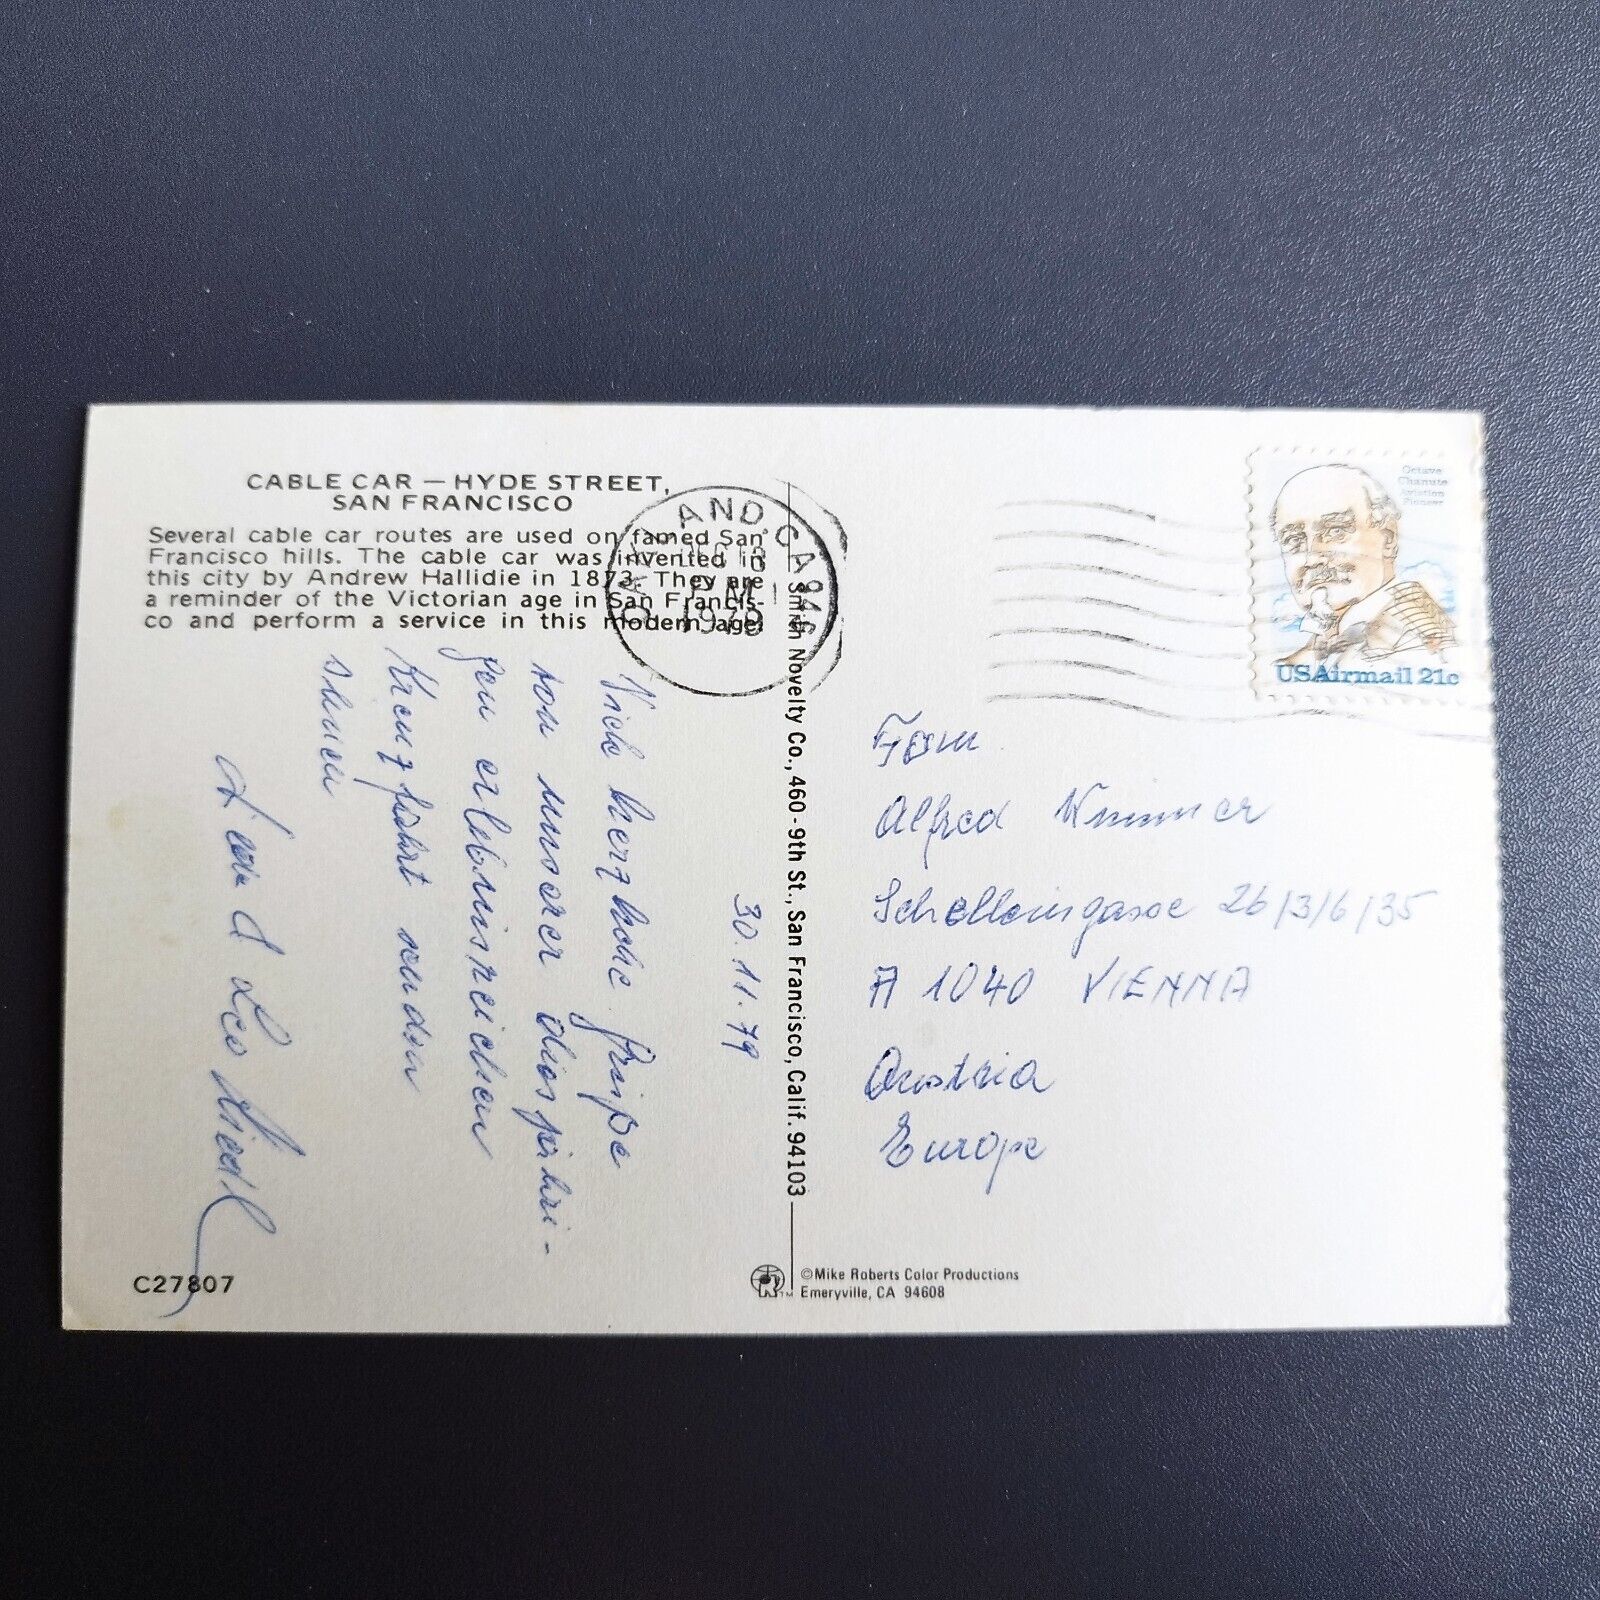 CABLE CAR — HYDE STREET,
SAN FRANCISCO
Several cable car routes are used on famed San
Francisco hills. The cable car was invented in
this city by Andrew Hallidie in 1873. They are
a reminder of the Victorian age in San Francis-
co and perform a service in this modern age.
30.11.79
herzliche Grüße
von unserer diesjähri-
gen erlebnisreichen
Kreuzfahrt senden
Leo Riedl
C27807
Smith Novelty Co., 460-9th St., San Francisco, Calif. 94103
©Mike Roberts Color Productions
Emeryville, CA 94608
OAKLAND, CA 946
PM
Octave
Chanute
Aviation
Pioneer
USAirmail 21c
Fam
Alfred
26/3/6/35
A 1040 VIENNA
Austria
Europe